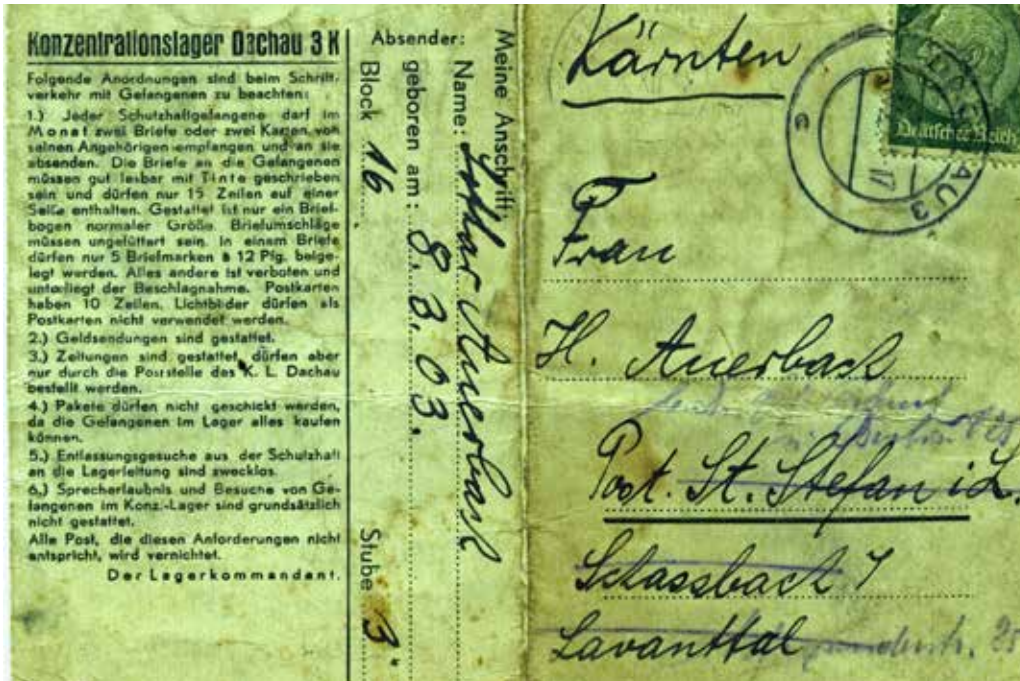 Konzentrationslager Dachau 3 K
Folgende Anordnungen sind beim Schrift-
verkehr mit Gefangenen zu beachten:
1.) Jeder Schutzhaftgefangene darf im
Monat zwei Briefe oder zwei Karten von
seinen Angehörigen empfangen und an sie
absenden. Die Briefe an die Gefangenen
müssen gut lesbar mit Tinte geschrieben
sein und dürfen nur 15 Zeilen auf einer
Seite enthalten. Gestattet ist nur ein Brief-
bogen normaler Größe. Briefumschläge
müssen ungefüttert sein. In einem Briefe
dürfen nur 5 Briefmarken à 12 Pfg. beige-
legt werden. Alles andere ist verboten und
unterliegt der Beschlagnahme. Postkarten
haben 10 Zeilen. Lichtbilder dürfen als
Postkarten nicht verwendet werden.
2.) Geldsendungen sind gestattet.
3.) Zeitungen sind gestattet, dürfen aber
nur durch die Poststelle des K. L. Dachau
bestellt werden.
4.) Pakete dürfen nicht geschickt werden,
da die Gefangenen im Lager alles kaufen
können.
5.) Entlassungsgesuche aus der Schutzhaft
an die Lagerleitung sind zwecklos.
6.) Sprecherlaubnis und Besuche von Ge-
fangenen im Konz.-Lager sind grundsätzlich
nicht gestattet.
Alle Post, die diesen Anforderungen nicht
entspricht, wird vernichtet.
Der Lagerkommandant.
Meine Anschrift:
Absender:
Name: Lothar Auerbach
geboren am: 8. 8. 03.
Block 16 Stube 3
Kärnten
Deutsches Reich
Frau
H. Auerbach
Post. St. Stefan i. L.
Schassbach 7
Lavanttal